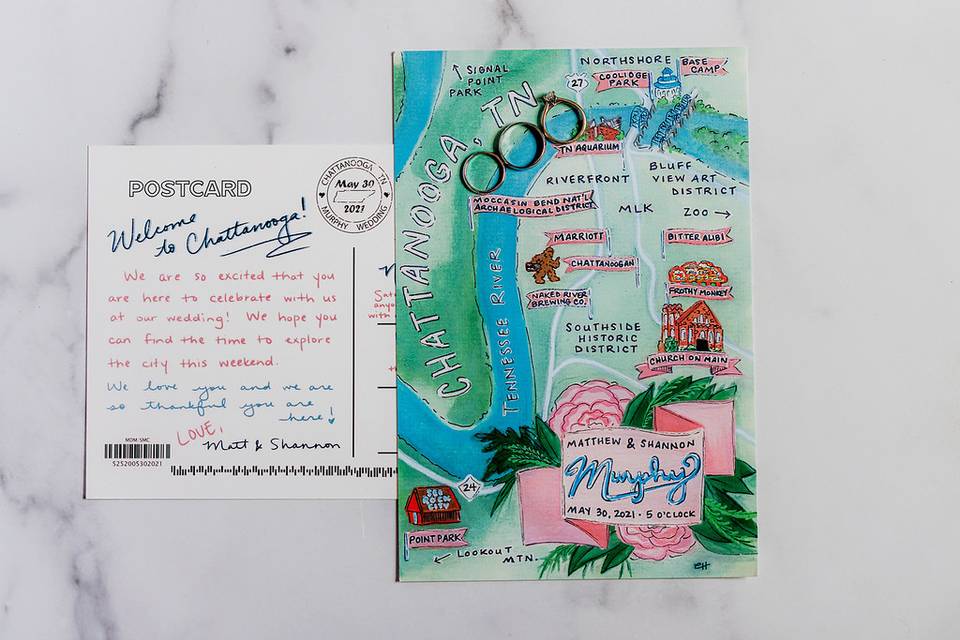 POSTCARD
CHATTANOOGA TN
May 30
2021
MURPHY WEDDING
Welcome
to Chattanooga!
We are so excited that you
are here to celebrate with us
at our wedding! We hope you
can find the time to explore
the city this weekend.
We love you and we are
so thankful you are
here!
LOVE,
Matt & Shannon
MDM SMC
S252005302021
any
with
SIGNAL
POINT
PARK
CHATTANOOGA, TN
27
NORTHSHORE
COOLIDGE
PARK
BASE
CAMP
TN AQUARIUM
RIVERFRONT
BLUFF
VIEW ART
DISTRICT
MOCCASIN BEND NAT'L
ARCHAELOGICAL DISTRICT
MLK
ZOO →
MARRIOTT
BITTER ALIBI
CHATTANOOGAN
FROTHY MONKEY
NAKED RIVER
BREWING CO.
TENNESSEE RIVER
SOUTHSIDE
HISTORIC
DISTRICT
CHURCH ON MAIN
MATTHEW & SHANNON
Murphy
MAY 30, 2021 · 5 O'CLOCK
24
SEE
ROCK
CITY
POINT PARK
LOOKOUT
MTN.
CH